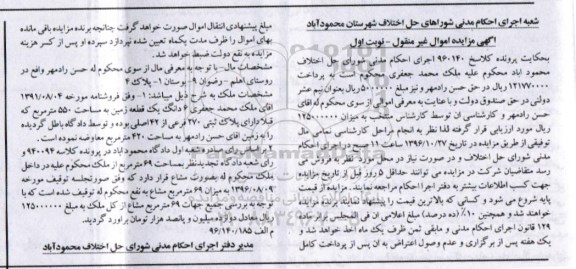 شعبه اجرای احکام مدنی شوراهای حل اختلاف شهرستان محمودآباد
آگهی مزایده اموال غیر منقول - نوبت اول
بحکایت پرونده کلاسه ۹۶۰۱۴۰ اجرای احکام مدنی شورای حل اختلاف
محمود اباد محکوم علیه ملک محمد جعفری محکوم است به پرداخت
۱۲۱۷۷۰۰۰۰ ریال در حق حسن رادمهر و نیز مبلغ ۵۰۰۰۰۰۰ ریال بعنوان نیم عشر
دولتی در حق صندوق دولت و با عنایت به معرفی اموالی از سوی محکوم له اقای
حسن رادمهر و کارشناسی ان توسط کارشناس منتخب به میزان ۱۲۵۰۰۰۰۰
ریال مورد ارزیابی قرار گرفته لذا نظر به انجام مراحل کارشناسی تمامی مال
توقیفی از طریق مزایده در تاریخ ۱۳۹۶/۱۰/۲۷ ساعت ۱۱ صبح در اجرای احکام
مدنی شورای حل اختلاف و در صورت نیاز در محل مورد نظر به فروش می
رسد متقاضیان شرکت در مزایده می توانند حداقل ۵ روز قبل از تاریخ مزایده
جهت کسب اطلاعات بیشتر به دفتر اجرا احکام مراجعه نمایند. مزایده از قیمت
پایه شروع می شود و کسانی که بالاترین قیمت را پیشنهاد نمایند برنده مزایده
خواهند شد و همچنین ۱۰٪ (ده درصد) مبلغ اعلامی ان فی المجلس برابر ماده
۱۲۹ قانون اجرای احکام مدنی و مابقی ثمن ظرف یک ماه اخذ خواهد شد و
یک هفته پس از برگزاری و عدم وصول اعتراض به ان پس از پرداخت کامل
مبلغ پیشنهادی انتقال اموال صورت خواهد گرفت چنانچه برنده مزایده باقی مانده
بهای اموال را ظرف مدت یکماه تعیین شده نپردازد سپرده او پس از کسر هزینه
مزایده به نفع دولت ضبط خواهد شد.
مشخصات مال- با توجه به معرفی مال از سوی محکوم له حسن رادمهر واقع در
روستای اهلم - رضوان ۹- بوستان ۱ - پلاک ۴
مشخصات ملک به شرح ذیل میباشد: ۱- وفق فروشنامه مورخه ۱۳۹۱/۰۸/۰۴
اقای ملک محمد جعفری ۶ دانگ یک قطعه زمین به مساحت ۵۵۰ مترمربع که
قبلا دارای پلاک ثبتی ۲۷۰ فرعی از ۴۲ اصلی بوده و توسط دادگاه باطل گردیده
را به زمین اقای حسن رادمهر به مساحت ۴۲۰ مترمربع معاوضه نموده است.
۲- بر اساس رای صادره شعبه اول دادگاه محمود آباد در پرونده کلاسه ۹۴۰۰۹۴ و
رای شعبه دادگاه تجدید نظر بمساحت ۶۹ مترمربع از ملک محکوم علیه در داخل
ملک محکوم له بصورت مشاع قرار دارد که وفق صورتجلسه توقیف مورخه
۱۳۹۶/۰۸/۰۹ به میزان ۶۹ مترمربع مشاع به نفع محکوم له توقیف شده است که با
توجه به بررسی جمیع جهات ۶۹ مترمربع مشاع از کل ملک به مبلغ ۱۲۵۰۰۰۰۰
ریال معادل دوازده میلیون و پانصد هزار تومان براورد گردید.
م الف ۹۶/۱۴۰/۱۸۵
مدیر دفتر اجرای احکام مدنی شورای حل اختلاف محمودآباد